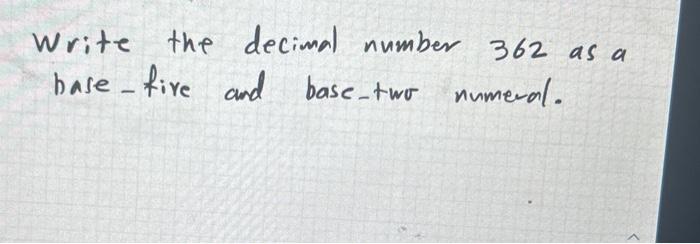 Write the decimal number 362 as a
base-five and base-two numeral.